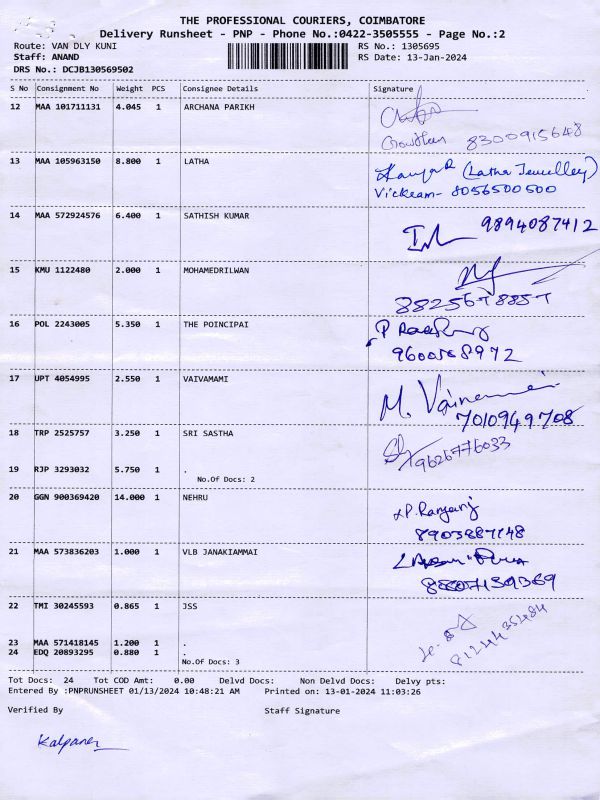 THE PROFESSIONAL COURIERS, COIMBATORE
Delivery Runsheet - PNP - Phone No.:0422-3505555 - Page No.:2
Route: VAN DLY KUNI RS No.: 1305695
Staff: ANAND RS Date: 13-Jan-2024
DRS No.: DCJB130569502
S No Consignment No Weight PCS Consignee Details Signature
12 MAA 101711131 4.045 1 ARCHANA PARIKH
Gowtham 8300915648
13 MAA 105963150 8.800 1 LATHA (Latha Jewelley)
Vickram- 8056500500
14 MAA 572924576 6.400 1 SATHISH KUMAR 9894087412
15 KMU 1122480 2.000 1 MOHAMEDRILWAN
8825678857
16 POL 2243005 5.350 1 THE POINCIPAI
17 UPT 4054995 2.550 1 VAIVAMAMI
M.
7010949708
18 TRP 2525757 3.250 1 SRI SASTHA
9626776033
19 RJP 3293032 5.750 1 .
No.Of Docs: 2
20 GGN 900369420 14.000 1 NEHRU
8903887148
21 MAA 573836203 1.000 1 VLB JANAKIAMMAI
22 TMI 30245593 0.865 1 JSS
8124435484
23 MAA 571418145 1.200 1 .
24 EDQ 20893295 0.880 1 .
No.Of Docs: 3
Tot Docs: 24 Tot COD Amt: 0.00 Delvd Docs: Non Delvd Docs: Delvy pts:
Entered By :PNPRUNSHEET 01/13/2024 10:48:21 AM Printed on: 13-01-2024 11:03:26
Verified By Staff Signature
Kalpana